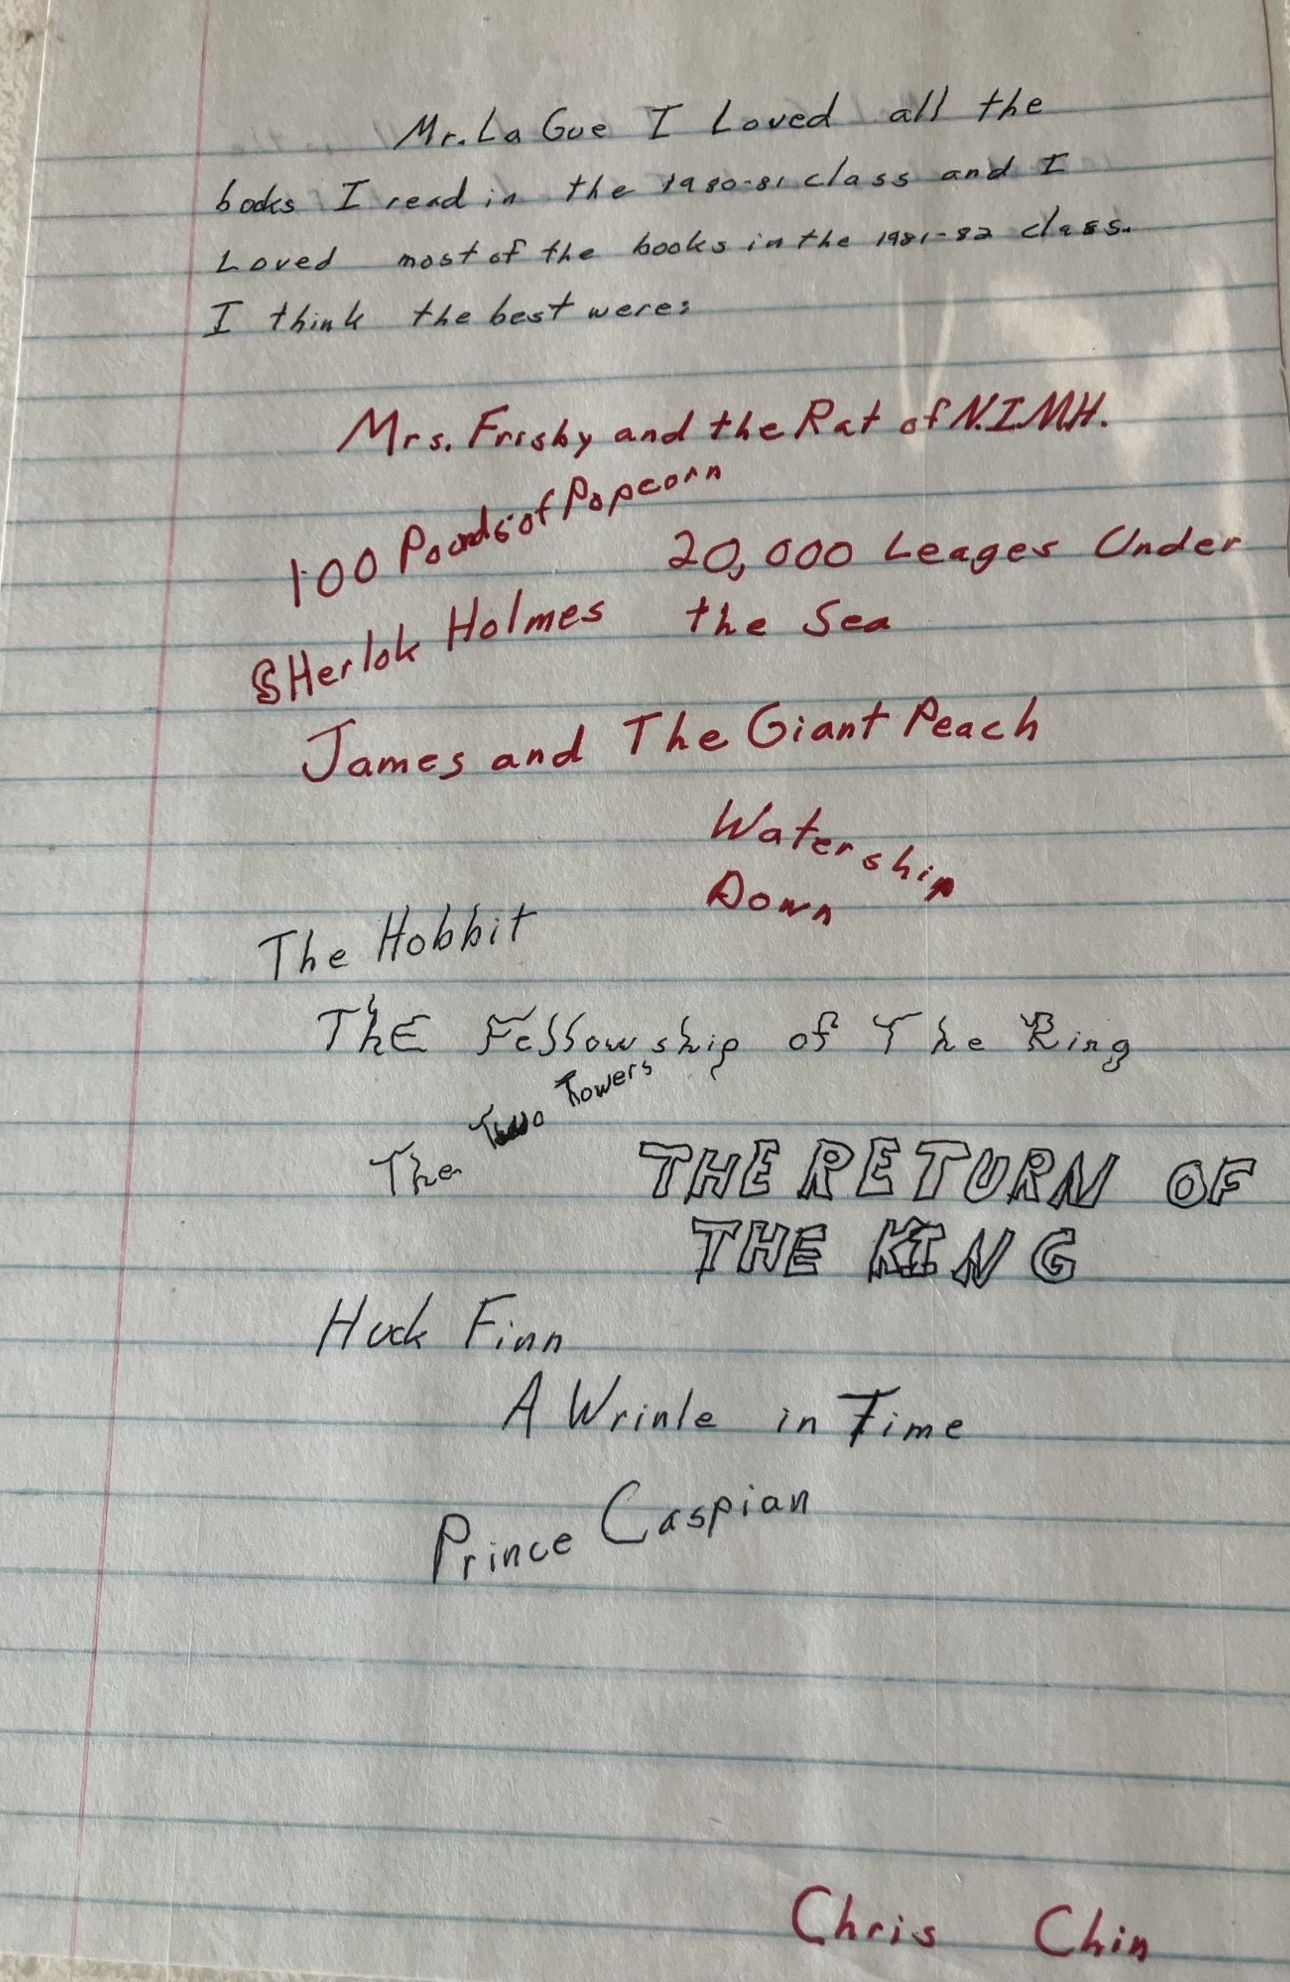 Mr. La Gue I Loved all the
books I read in the 1980-81 class and I
Loved most of the books in the 1981-82 class.
I think the best were:
Mrs. Frisby and the Rat of N.I.M.H.
100 Pounds of Popcorn
20,000 Leages Under
the Sea
SHerlok Holmes
James and The Giant Peach
Watership
Down
The Hobbit
ThE Fellowship of The Ring
The Two Towers
THE RETURN OF
THE KING
Huck Finn
A Wrinle in Time
Prince Caspian
Chris Chin